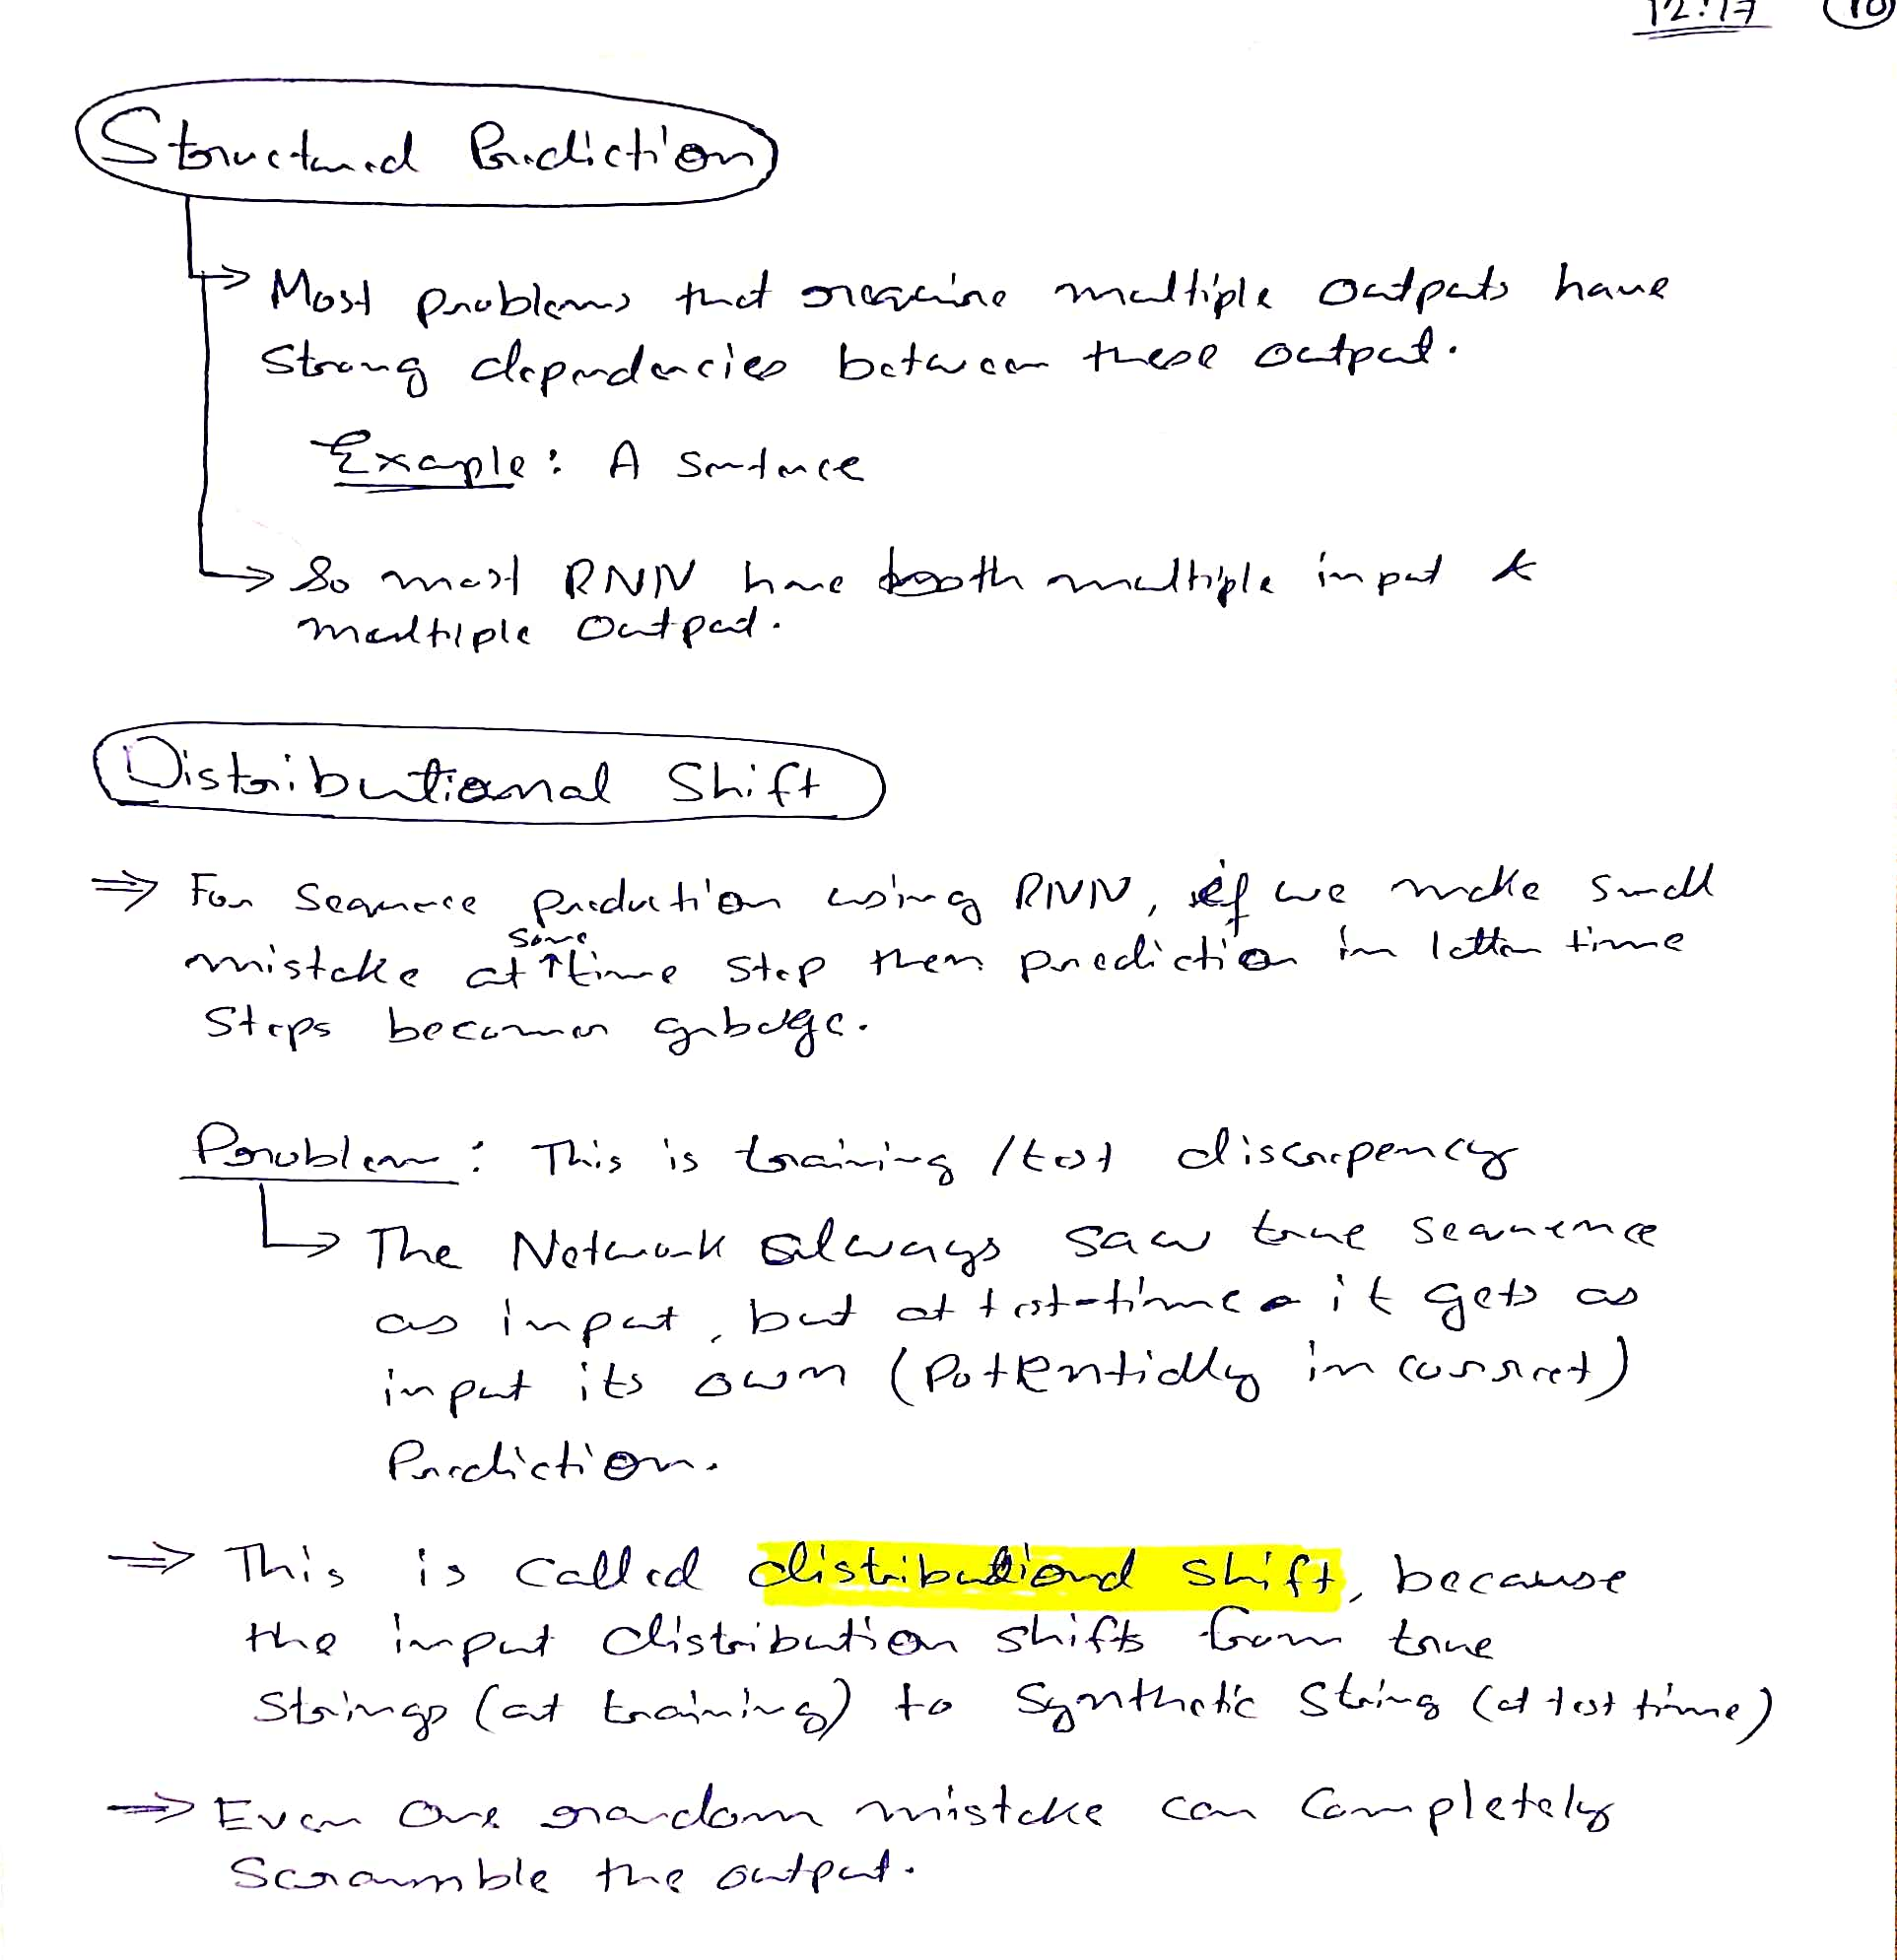 12:17 10
Structured Prediction
Most problems that require multiple outputs have
strong dependencies between these output.
Example: A sentence
So most RNN have both multiple input &
multiple output.
Distributional Shift
⇒ For sequence prediction using RNN, if we make small
some
mistake at time step then prediction in latter time
steps becomes garbage.
Problem: This is training/test discrepency
The Network always saw true sequence
as input, but at test-time it gets as
input its own (Potentially incorrect)
Prediction.
⇒ This is called distributional shift, because
the input distribution shifts from true
strings (at training) to synthetic string (at test time)
⇒ Even one random mistake can completely
scramble the output.